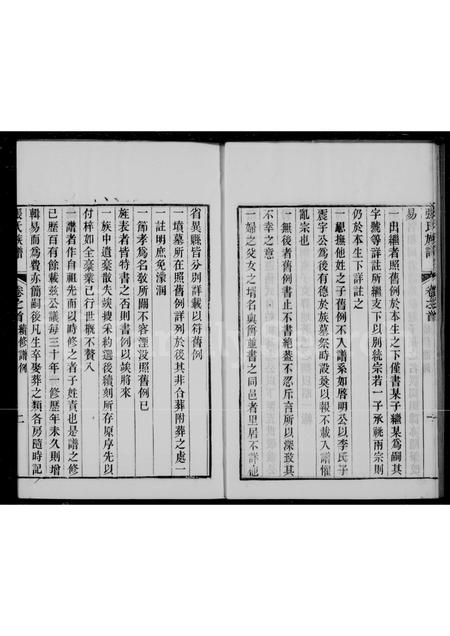 易
一出繼者照舊例於本生之下僅書某子繼某爲嗣其
字號等詳註所繼支下以別統宗若一子承祧兩宗則
仍於本生下詳註之
一恩撫他姓之子舊例不入譜系如啓明公以李氏子
震宇公爲後有德於族墓祭時設奠以報不載入譜懼
亂宗也
一無後者舊例書止不書絕蓋不忍斥言所以深致其
不幸之意
一婦之父女之壻名與爵並書之同邑者里居不詳他
省異縣皆分別詳載以符舊例
一墳墓所在照舊例詳列於後其非合葬附葬之處一
一註明庶免濛溷
一節孝爲名敎所關不容湮沒照舊例已
旌表者皆特書之否則書例以竢將來
一族中遺稾散失竢搜采約選後續刻所存原序先以
付梓如全稾業已行世概不贅入
一譜者作自祖先而以時修之者子姓責也是譜之修
已歷百有餘載茲公議每三十年一修歷年未久則增
輯易而爲費亦簡嗣後凡生卒娶葬之類各房隨時記
張氏族譜 卷之首 續修譜例 二